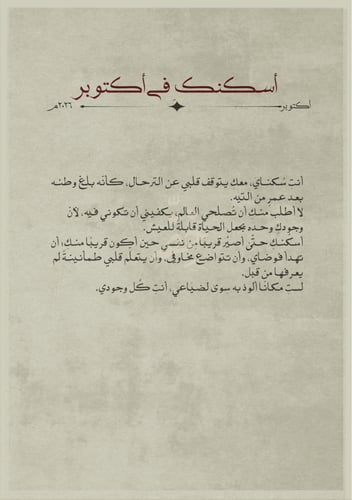 أسكنك في أكتوبر
أكتوبر
٢٠٢٦م
أنتِ سُكناي، معكِ يتوقف قلبي عن الترحال، كأنّه بلغ وطنه
بعد عمرٍ من التيه.
لا أطلب منكِ أن تُصلحي العالم، يكفيني أن تكوني فيه، لأنّ
وجودكِ وحده يجعل الحياة قابلةً للعيش.
أسكنكِ حتّى أصير قريبًا من نفسي حين أكون قريبًا منكِ، أن
تهدأ فوضاي، وأن تتواضع مخاوفي، وأن يتعلّم قلبي طمأنينةً لم
يعرفها من قبل.
لستِ مكانًا ألوذ به سوى لضياعي، أنتِ كُل وجودي.